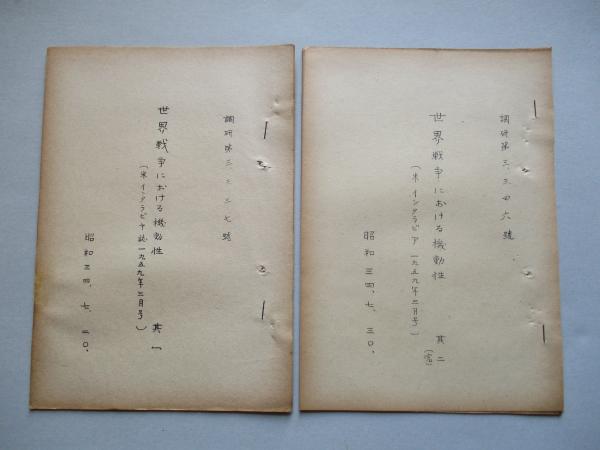 調研第三、三四六號
世界戦争における機動性 其二
(完)
(米 インタラビア 一九五九年二月号)
昭和三四、七、三〇、
調研第三、三三七號
世界戦争における機動性 其一
(米 インタラビヤ誌 一九五九年二月号)
昭和三四、七、二〇、